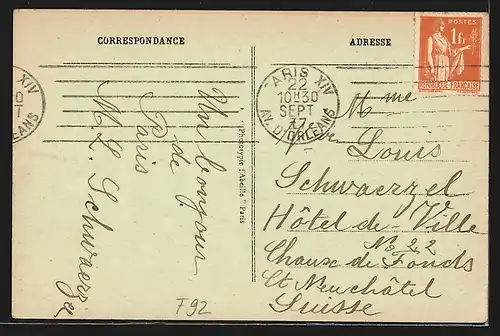 CORRESPONDANCE
ADRESSE
POSTES
1fr
REPUBLIQUE FRANÇAISE
PARIS XIV
22
10H30
SEPT
37
AV. D'ORLEANS
XIV
Un bonjour
de
Paris
M L. Schwaerzel
"Phototypie l'Abeille" Paris
Mme
Louis
Schwaerzel
Hôtel-de-Ville
No 22
Chaux de Fonds
Ct Neuchâtel
Suisse
F92